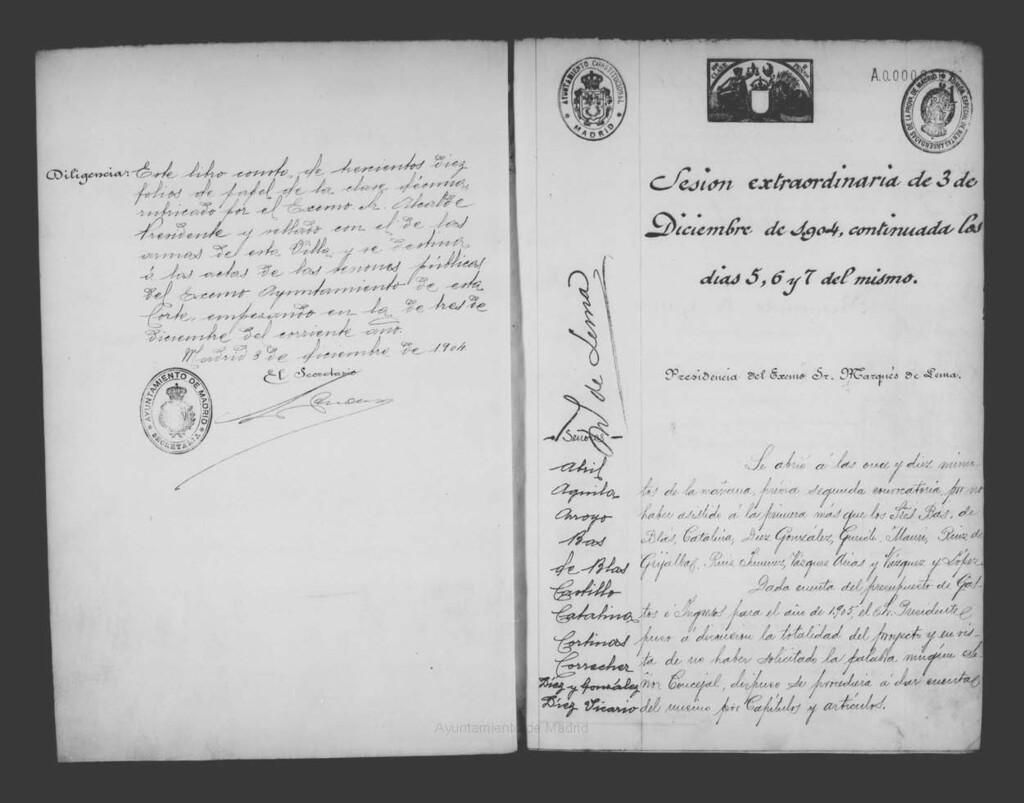 Diligencia: Este libro consta de trescientos diez
folios de papel de la clase décima,
rubricado por el Excmo Sr. Alcalde
Presidente y sellado con el de las
armas de esta Villa y se destina
á las actas de las sesiones públicas
del Excmo Ayuntamiento de esta
Corte, empezando en la de tres de
diciembre del corriente año.
Madrid 3 de diciembre de 1904
El Secretario
AYUNTAMIENTO DE MADRID
SECRETARÍA
AYUNTAMIENTO CONSTITUCIONAL
MADRID
A.0.000
Sesion extraordinaria de 3 de
Diciembre de 1904, continuada los
dias 5, 6 y 7 del mismo.
Presidencia del Excmo Sr. Marqués de Lema.
M de Lema
Señores
Abril
Aguila
Arroyo
Bas
de Blas
Castillo
Catalina
Cortinas
Correcher
Díez y González
Díez Vicario
Se abrió á las once y diez minu-
tos de la mañana, previa segunda convocatoria, por no
haber asistido á la primera más que los Sres Bas, de
Blás, Catalina, Diez González, Maura, Ruiz de
Grijalba, Ruiz Jimenez, Vázquez Arias y Vázquez y López.
Dada cuenta del presupuesto de Gas-
tos é Ingresos para el año de 1905, el Sr. Presidente
puso á discusion la totalidad del proyecto y en vis-
ta de no haber solicitado la palabra ningún Se-
ñor Concejal, dispuso se procediera á dar cuenta
del mismo por Capítulos y artículos.
Ayuntamiento de Madrid